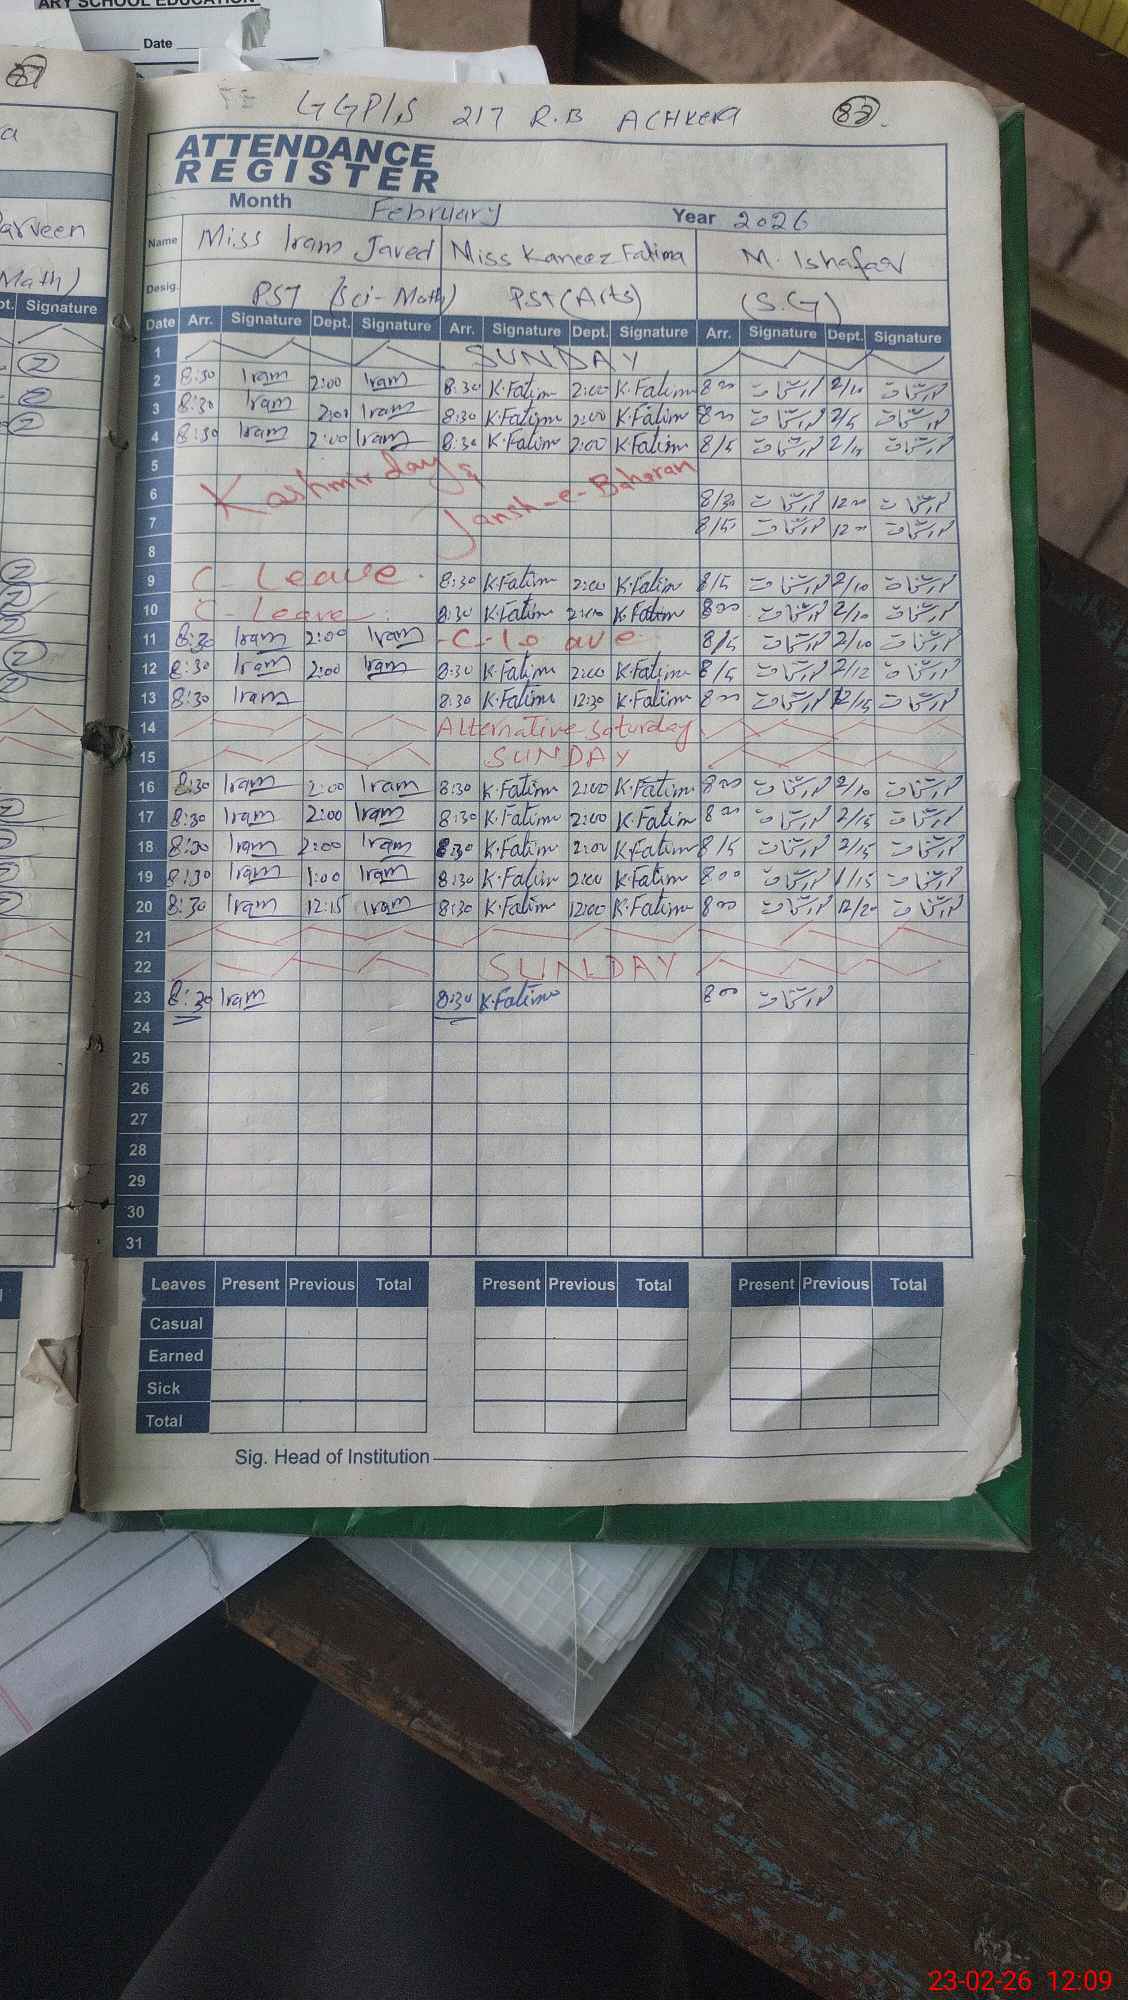 ARY SCHOOL EDUCATION
Date
GGP/S 217 R.B ACHKERA 82
ATTENDANCE
REGISTER
Month February Year 2026
Name Miss Iram Javed Miss Kaneez Fatima
Desig. PST (Sci-Math) PST (Arts) (S.G)
Date Arr. Signature Dept. Signature Arr. Signature Dept. Signature Arr. Signature Dept. Signature
1 SUNDAY
2 8:30 Iram 2:00 Iram 8:30 K.Fatima 2:00 K.Fatima 8 00 2/10
3 8:30 Iram 2:00 Iram 8:30 K.Fatima 2:00 K.Fatima 8 00 2/5
4 8:30 Iram 2:00 Iram 8:30 K.Fatima 2:00 K.Fatima 8/5
5 Kashmir day &
6 Jansh-e-Baharan 8/30 12 00
7 8/5 12 00
8
9 C-Leave. 8:30 K.Fatima 2:00 K.Fatima 8/5 2/10
10 C-Leave. 8:30 K.Fatima 2:00 K.Fatima 8 00 2/10
11 8:30 Iram 2:00 Iram -C-leave 8/5 2/10
12 8:30 Iram 2:00 Iram 8:30 K.Fatima 2:00 K.Fatima 8/5 2/12
13 8:30 Iram 8:30 K.Fatima 12:30 K.Fatima 8 00 12/15
14 Alternative Saturday
15 SUNDAY
16 8:30 Iram 2:00 Iram 8:30 K.Fatima 2:00 K.Fatima 8 00 2/10
17 8:30 Iram 2:00 Iram 8:30 K.Fatima 2:00 K.Fatima 8 00 2/15
18 8:30 Iram 2:00 Iram 8:30 K.Fatima 2:00 K.Fatima 8/15 2/15
19 8:30 Iram 1:00 Iram 8:30 K.Fatima 2:00 K.Fatima 8 00 1/15
20 8:30 Iram 12:15 Iram 8:30 K.Fatima 12:00 K.Fatima 8 00 12/20
21
22 SUNDAY
23 8:30 Iram 8:30 K.Fatima 8 00
24
25
26
27
28
29
30
31
Leaves Present Previous Total Present Previous Total Present Previous Total
Casual
Earned
Sick
Total
Sig. Head of Institution
23-02-26 12:09